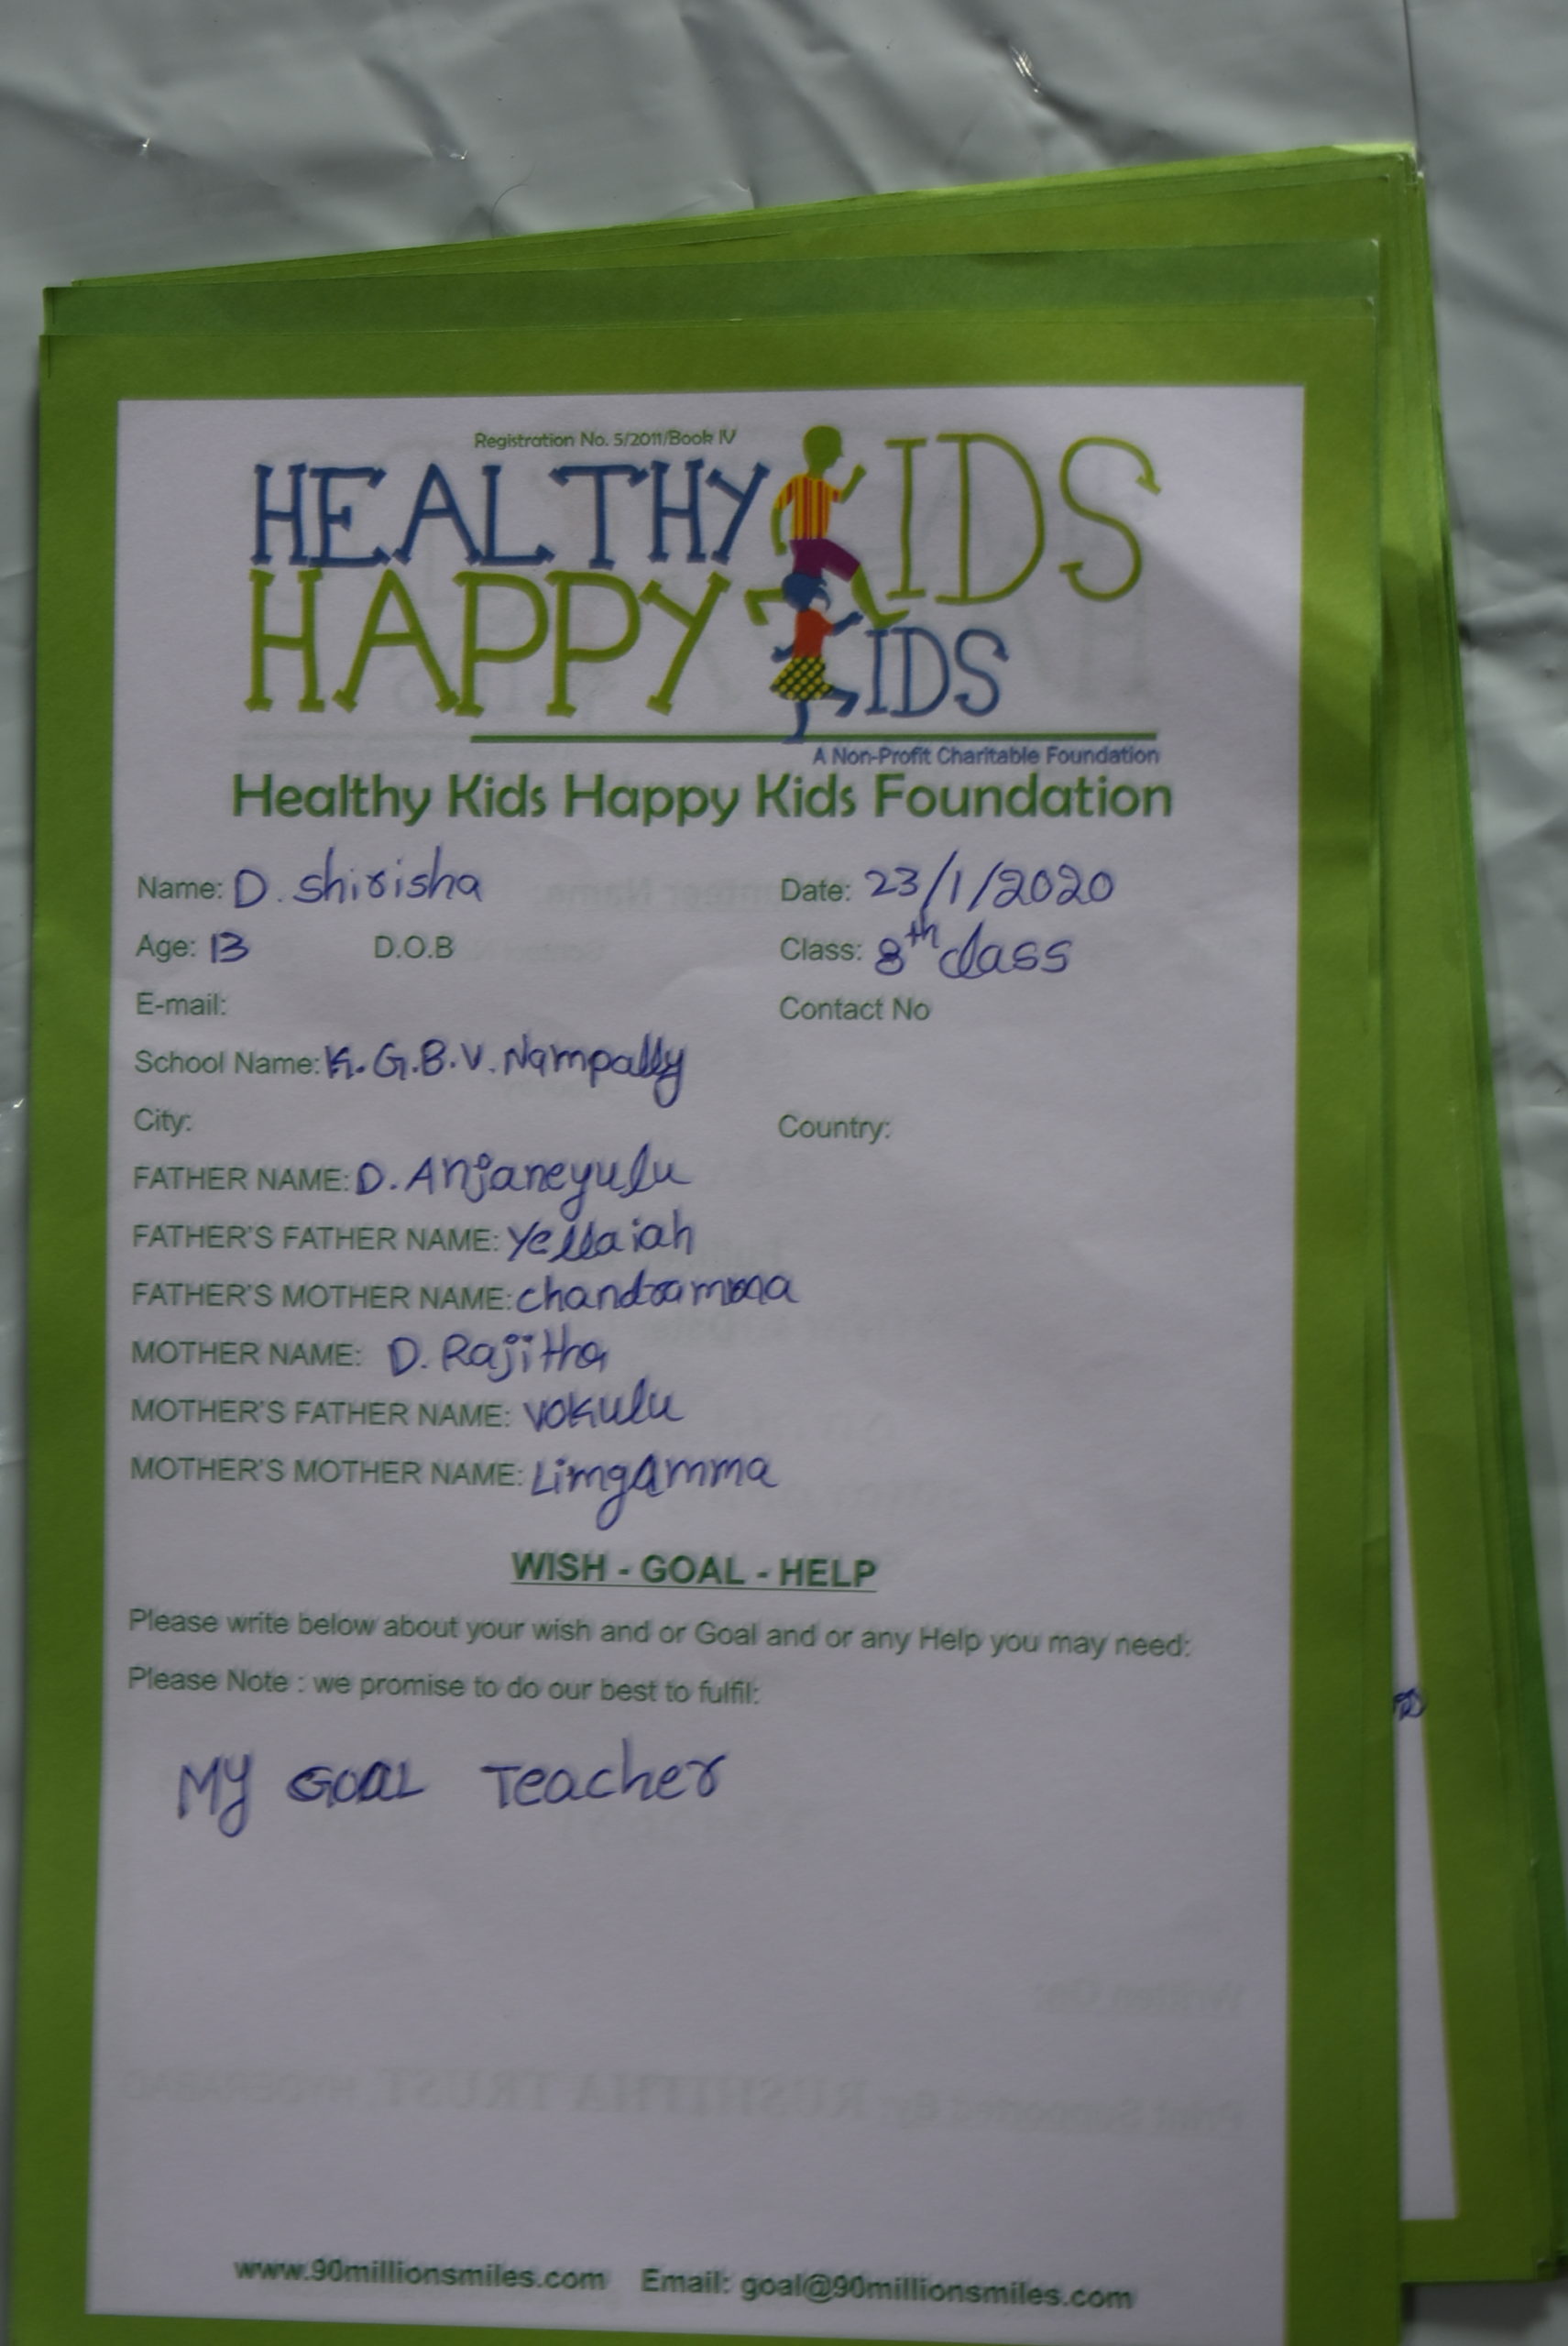 Registration No. 5/2011/Book IV
HEALTHY KIDS
HAPPY KIDS
A Non-Profit Charitable Foundation
Healthy Kids Happy Kids Foundation
Name: D. Shirisha Date: 23/1/2020
Age: 13 D.O.B Class: 8th class
E-mail: Contact No
School Name: K.G.B.V. Nampally
City: Country:
FATHER NAME: D. Anjaneyulu
FATHER'S FATHER NAME: Yellaiah
FATHER'S MOTHER NAME: chandramma
MOTHER NAME: D. Rajitha
MOTHER'S FATHER NAME: Vokulu
MOTHER'S MOTHER NAME: Limgamma
WISH - GOAL - HELP
Please write below about your wish and or Goal and or any Help you may need:
Please Note : we promise to do our best to fulfil:
MY GOAL Teacher
www.90millionsmiles.com Email: goal@90millionsmiles.com